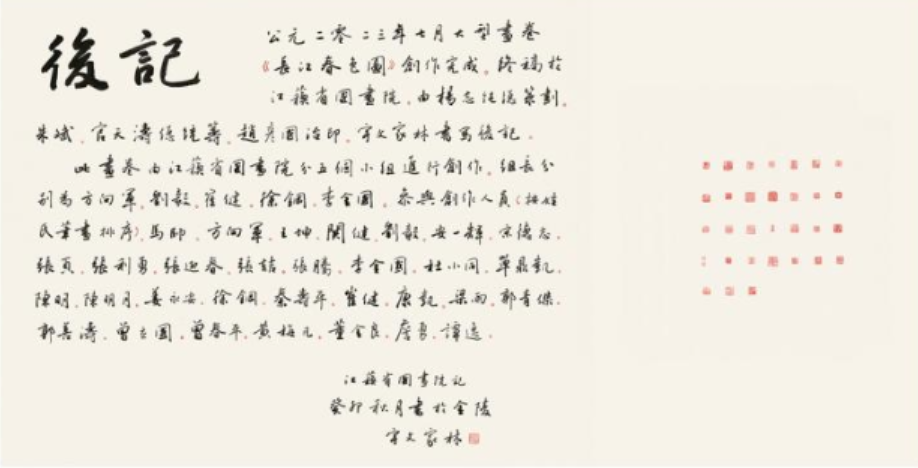 後記
公元二零二三年七月大型畫卷
《長江春色圖》創作完成.終稿於
江蘇省國畫院.由楊志 總策劃.
朱斌.官天濤總統籌.趙彦國治印.宇文家林書寫後記.
此畫卷由江蘇省國畫院分五個小組進行創作.組長分
别為方向軍.劉毅.崔健.徐鋼.李金國.參與創作人員(按姓
氏筆畫排序)馬帥.方向軍.王坤.關健.劉毅.安一輝.宗德志.
張貢.張利勇.張迎春.張喆.張騰.李金國.杜小同.單鼎凱.
陳明.陳明月.姜永安.徐鋼.秦壽平.崔健.康.梁雨.郭青傑.
郭善濤.曾立國.曾春平.黃梅元.董金良.唐勇.譚逸.
江蘇省國畫院記
癸卯秋月書於金陵
宇文家林